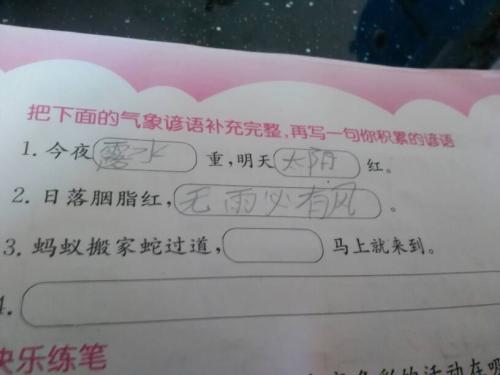 把下面的气象谚语补充完整,再写一句你积累的谚语
1. 今夜(露水)重,明天(太阳)红。
2. 日落胭脂红,(无雨必有风)。
3. 蚂蚁搬家蛇过道,( )马上就来到。
4.
快乐练笔